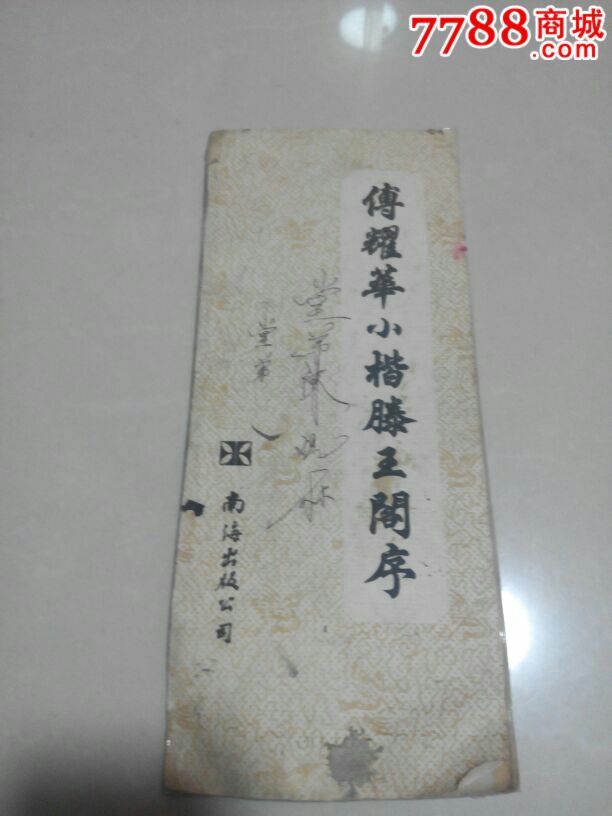 7788商城
.com
傅耀華小楷滕王閣序
堂弟
南海出版公司